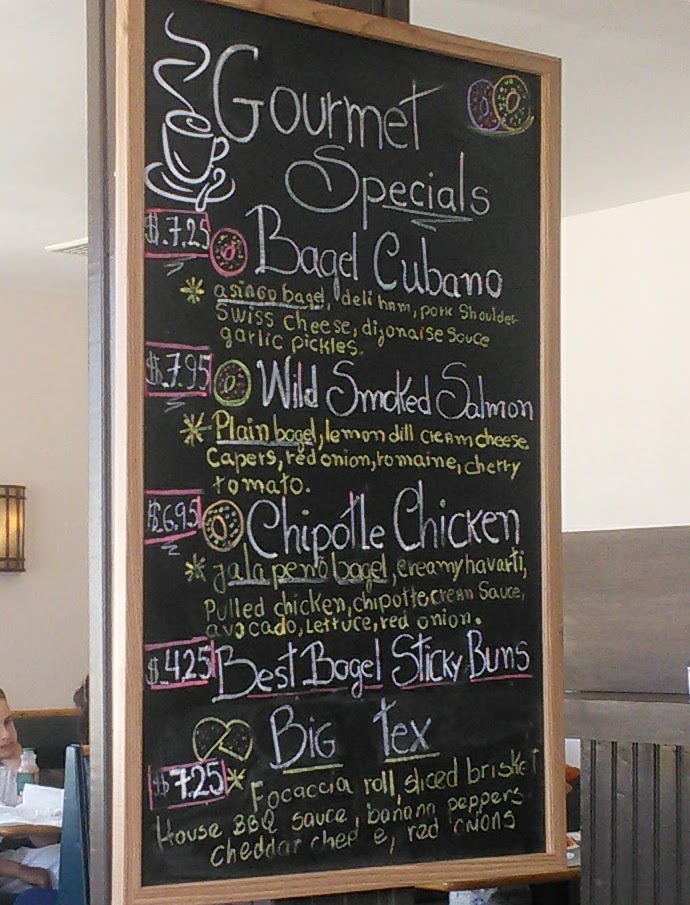 Gourmet
Specials
$7.25 Bagel Cubano
asiago bagel, deli ham, pork Shoulder
Swiss cheese, dijonaise Sauce
garlic pickles.
$7.95 Wild Smoked Salmon
Plain bagel, lemon dill cream cheese
Capers, red onion, romaine, cherry
tomato.
$6.95 Chipotle Chicken
jalapeno bagel, creamy havarti,
Pulled chicken, chipotte cream Sauce,
avocado, Lettuce, red onion.
$4.25 Best Bagel Sticky Buns
Big Tex
$7.25 Focaccia roll, sliced brisket
House BBQ sauce, banana peppers
cheddar chee e, red onions